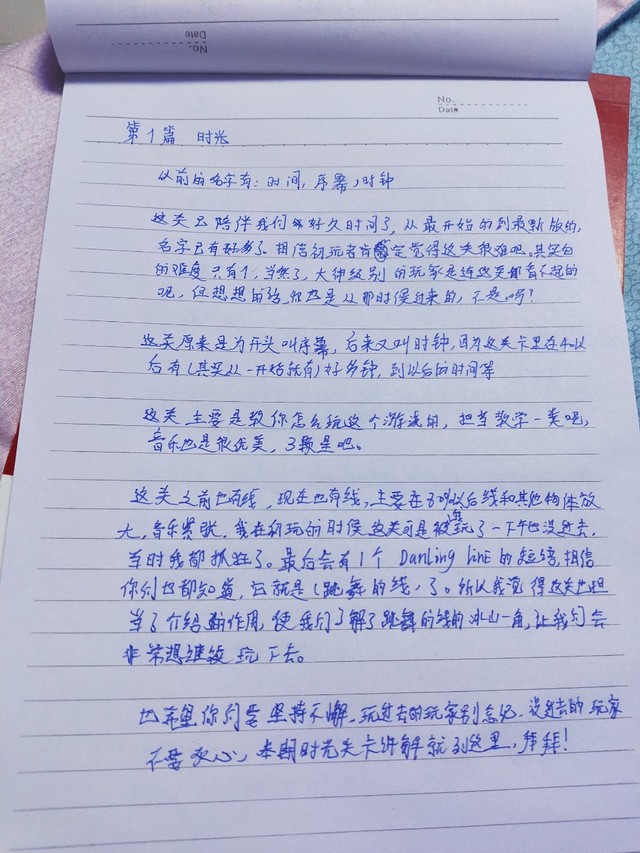 No.
Date
No.
Date
第1篇 时光
以前的名字有:时间,序幕,时钟
这关已陪伴我们好久时间了,从最开始的到最新版的,
名字已有好多了。相信初玩者肯定觉得这关很难吧。其实它
的难度只有1,当然了,大神级别的玩家是连这关都看不起的
呢,但想想的话,你也是从那时候过来的,不是吗?
这关原来是为开头叫序幕,后来又叫时钟,因为这关卡里在40%以
后有(其实从一开始就有)好多钟,到以后的时间等
这关主要是教你怎么玩这个游戏的,担当教学一类吧,
音乐也是很优美,3颗星吧。
这关之前也有线,现在也有线,主要在80%以后线和其他物体放
大,音乐紧张。我在初玩的时候这关可是被我玩了一下午也没过去,
当时我都抓狂了。最后会有1个Danling line的短语,相信
你们也都知道,它就是(跳舞的线)了。所以我觉得这关也担
当了介绍的作用,使我们了解了跳舞的线的冰山一角,让我们会
非常想继续玩下去。
也希望你们要坚持不懈。玩过去的玩家别忘记,没过去的玩家
不要灰心,本期时光关卡讲解就到这里,拜拜!